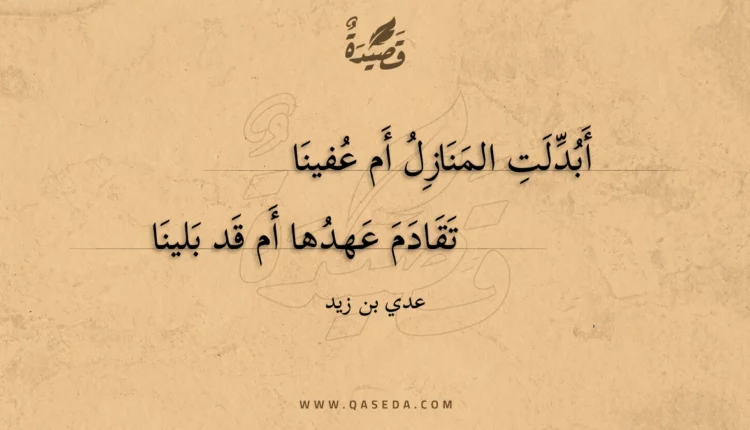 قَصِيدَةٌ
أَبُدِّلَتِ المَنَازِلُ أَم عُفينَا
تَقَادَمَ عَهدُها أَم قَد بَلينَا
عدي بن زيد
WWW.QASEDA.COM